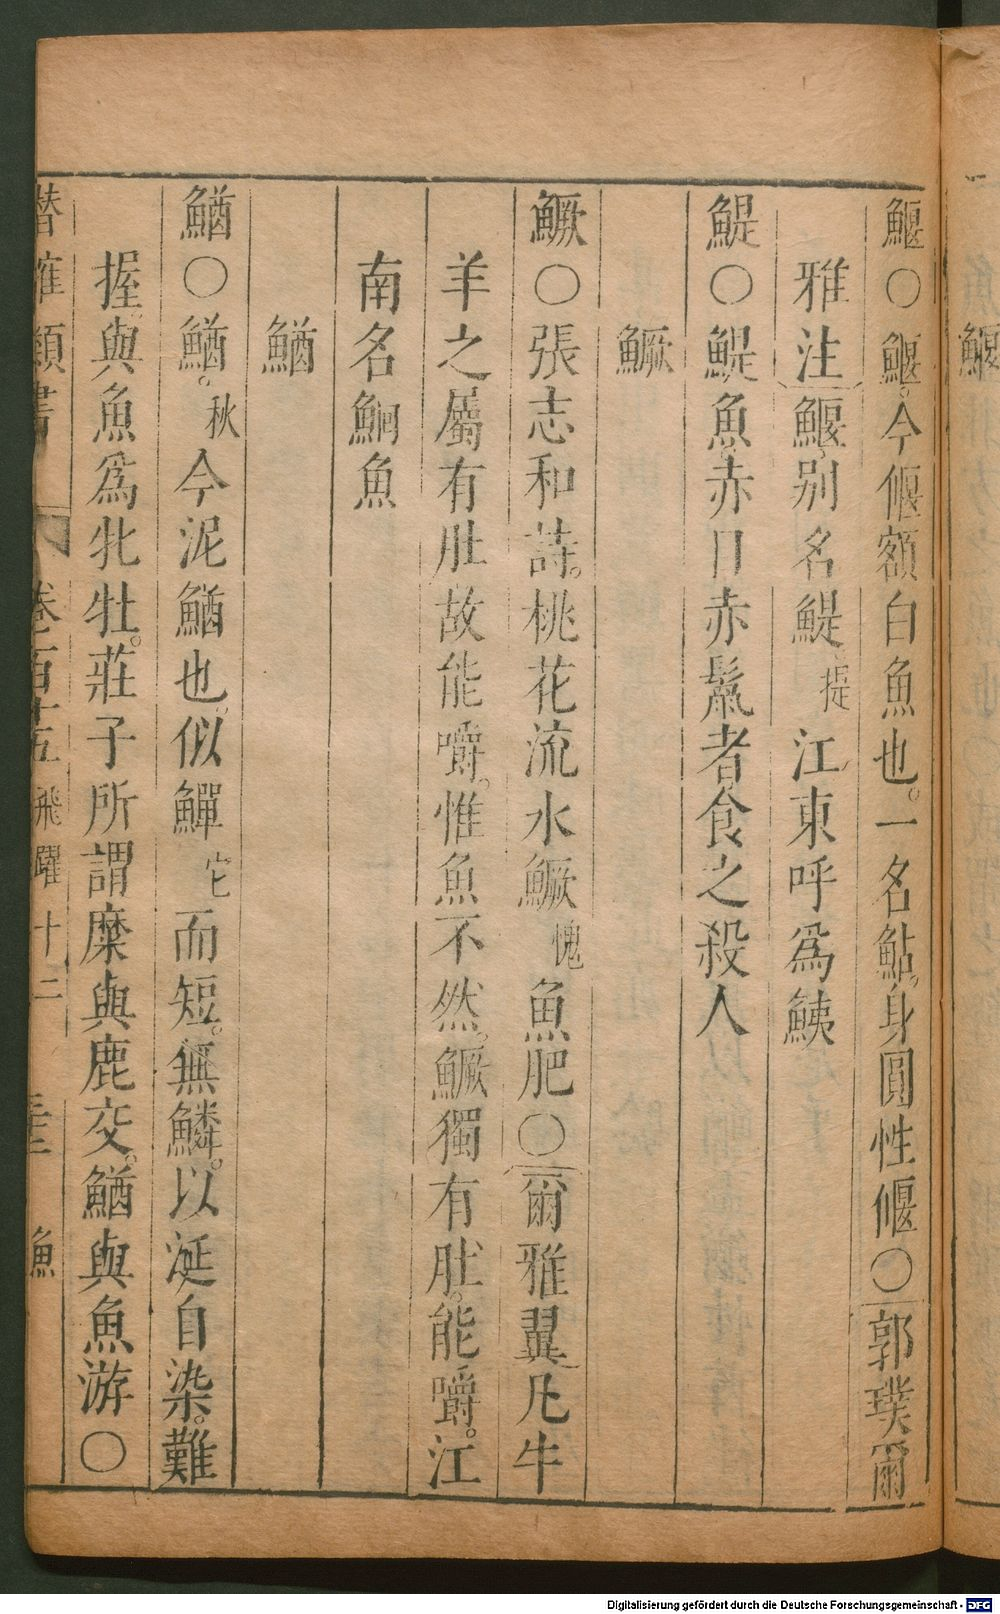 鰋
鰋〇鰋。今偃額白魚也。一名鮎。身圓性偃〇郭璞爾
雅注鰋。别名鯷提江東呼爲鮧
鯷〇鯷魚。赤目赤鬣者食之殺人
鱖
鱖〇張志和詩。桃花流水鱖愧魚肥〇爾雅翼凡牛
羊之屬有肚故能嚼。惟魚不然。鱖獨有肚。能嚼。江
南名鮰魚
鰌
鰌〇鰌。秋今泥鰌也。似鱓它而短。無鱗。以涎自染。難
握。與魚爲牝牡。莊子所謂麋與鹿交。鰌與魚游〇
潛確類書 卷一百十五 飛躍十二 魚
Digitalisierung gefördert durch die Deutsche Forschungsgemeinschaft - DFG